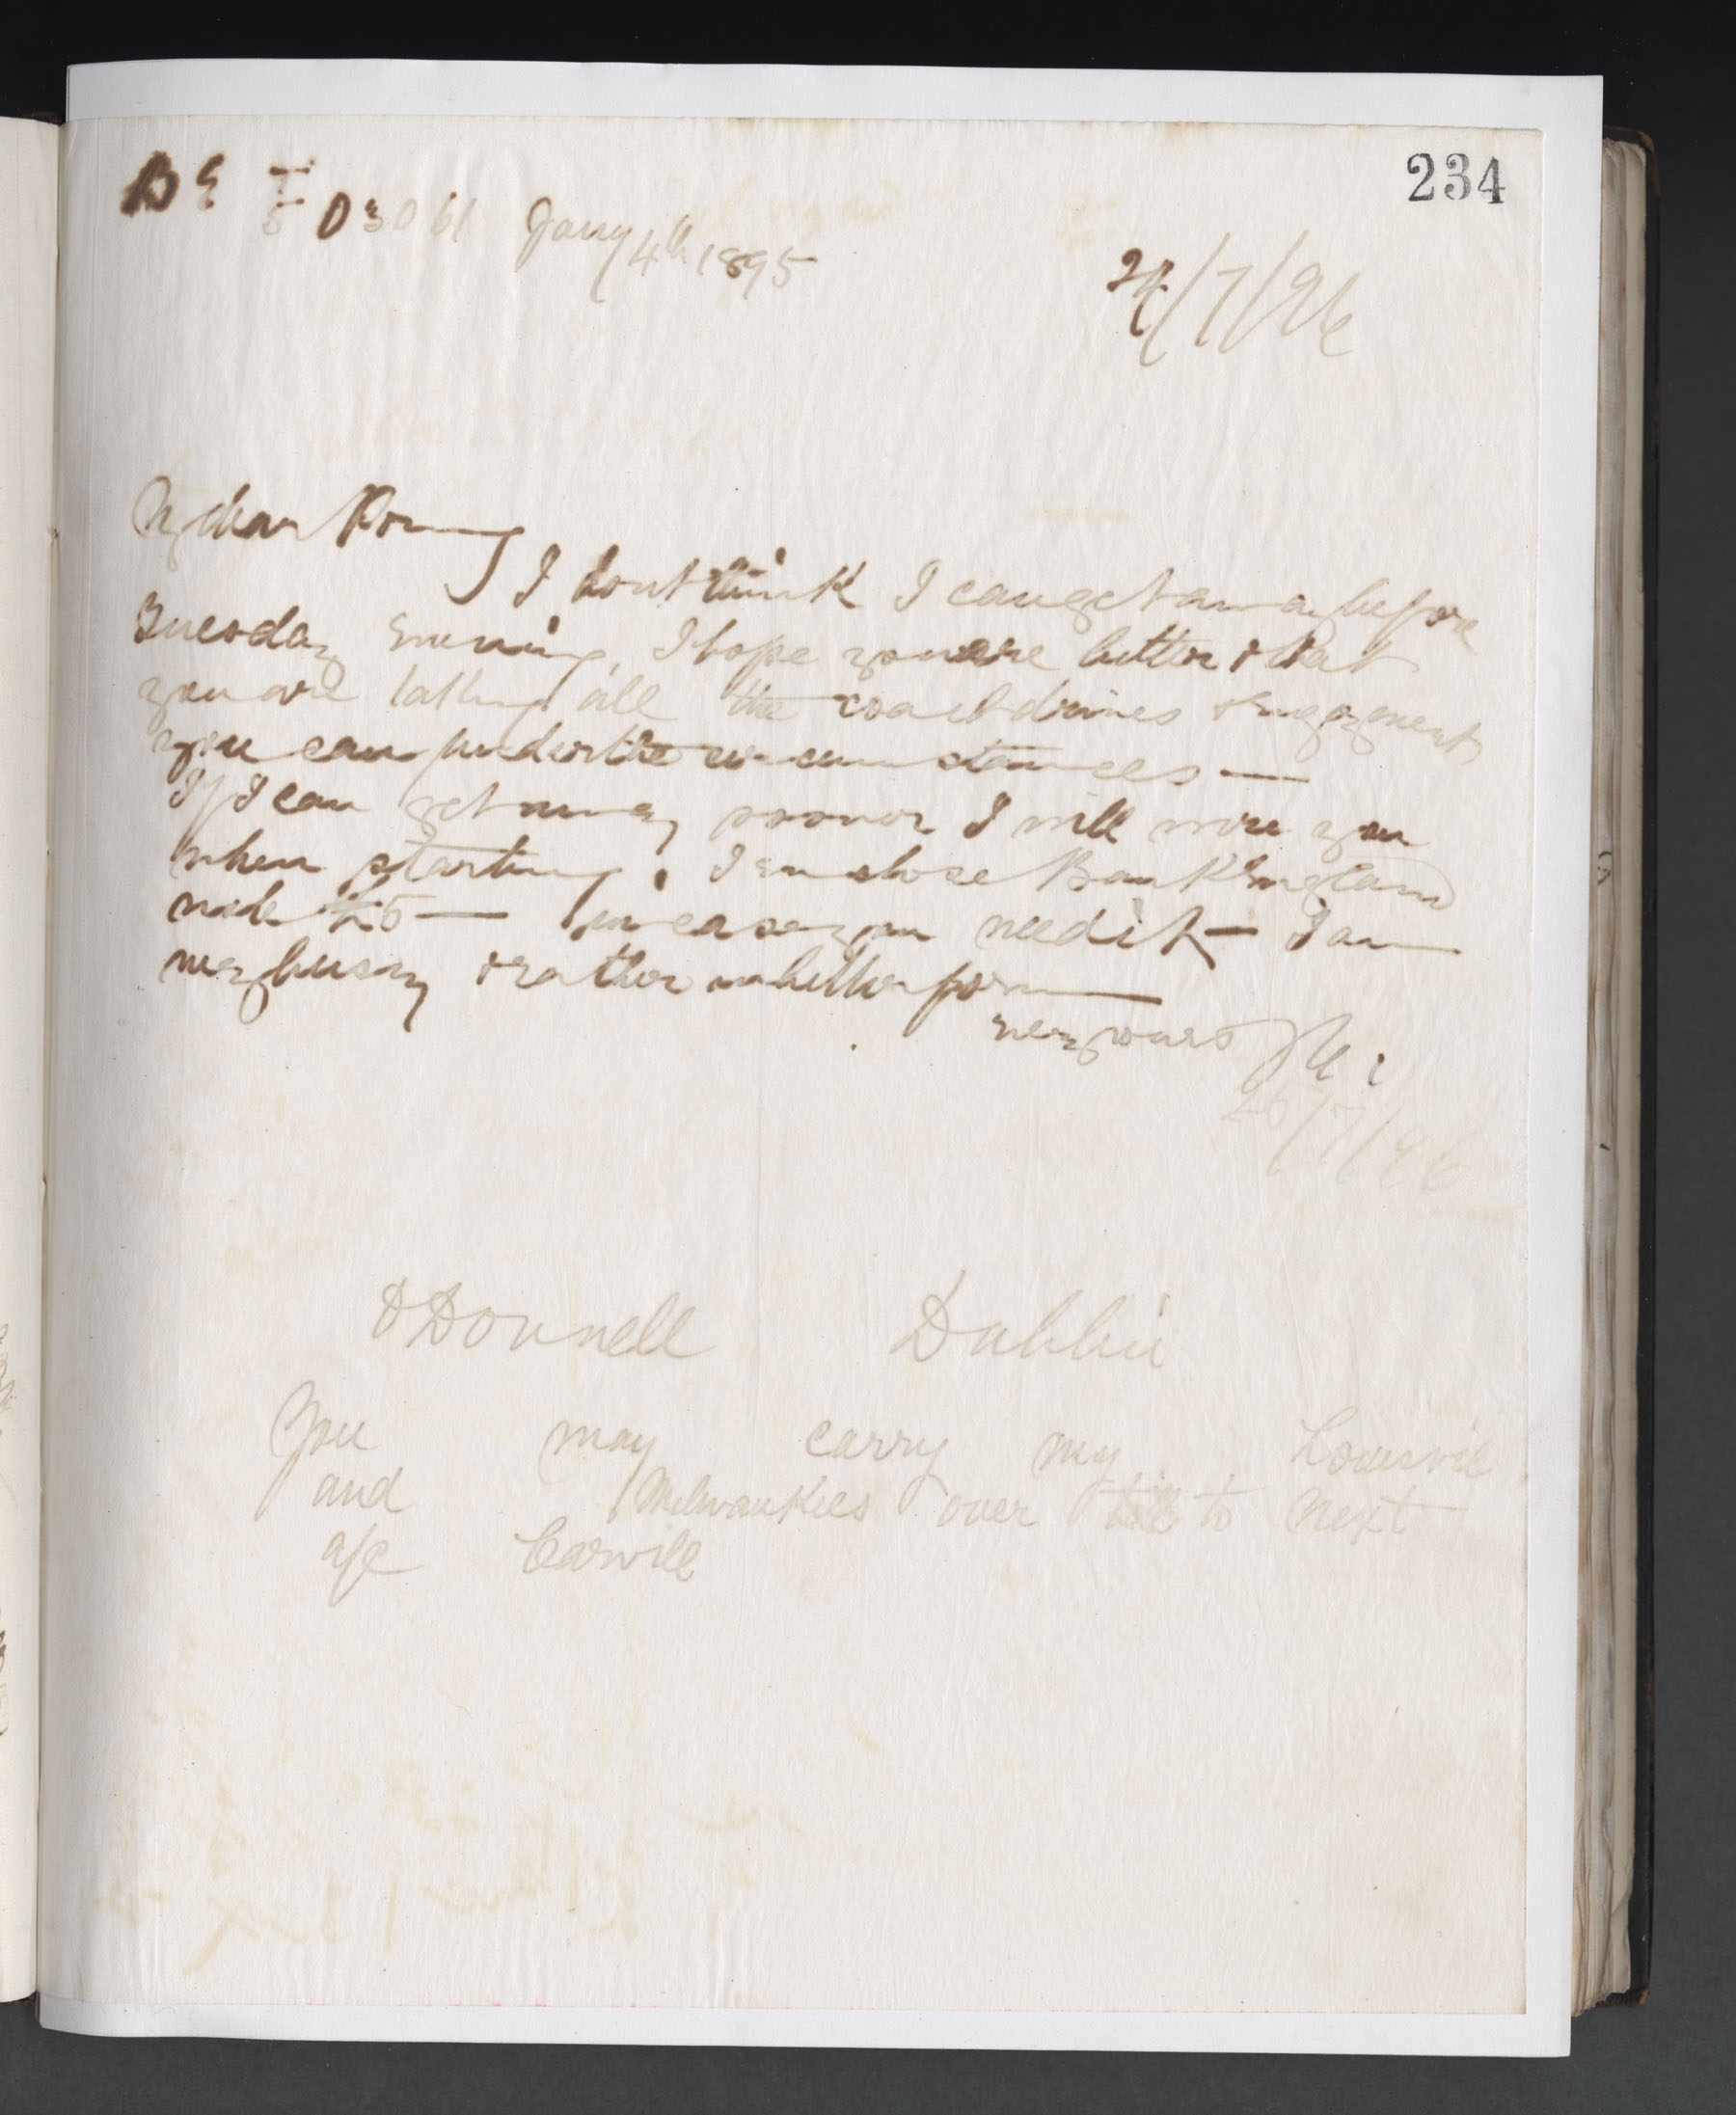 234
BE 5 03061 Jany 4th 1895
24/7/96
My dear Romy
I dont think I can get away before
Tuesday Evening, I hope you are better & that
you are taking all the coach drives & enjoyment
you can under the circumstances —
If I can get away sooner I will wire you
when starting. I enclose Bank England
note £5 — in case you need it — I am
very busy & rather in better form —
very yours
25/7/96
O Donnell Dublin
You may carry my Louisvil
and Milwaukees over to next
a/c Carvill